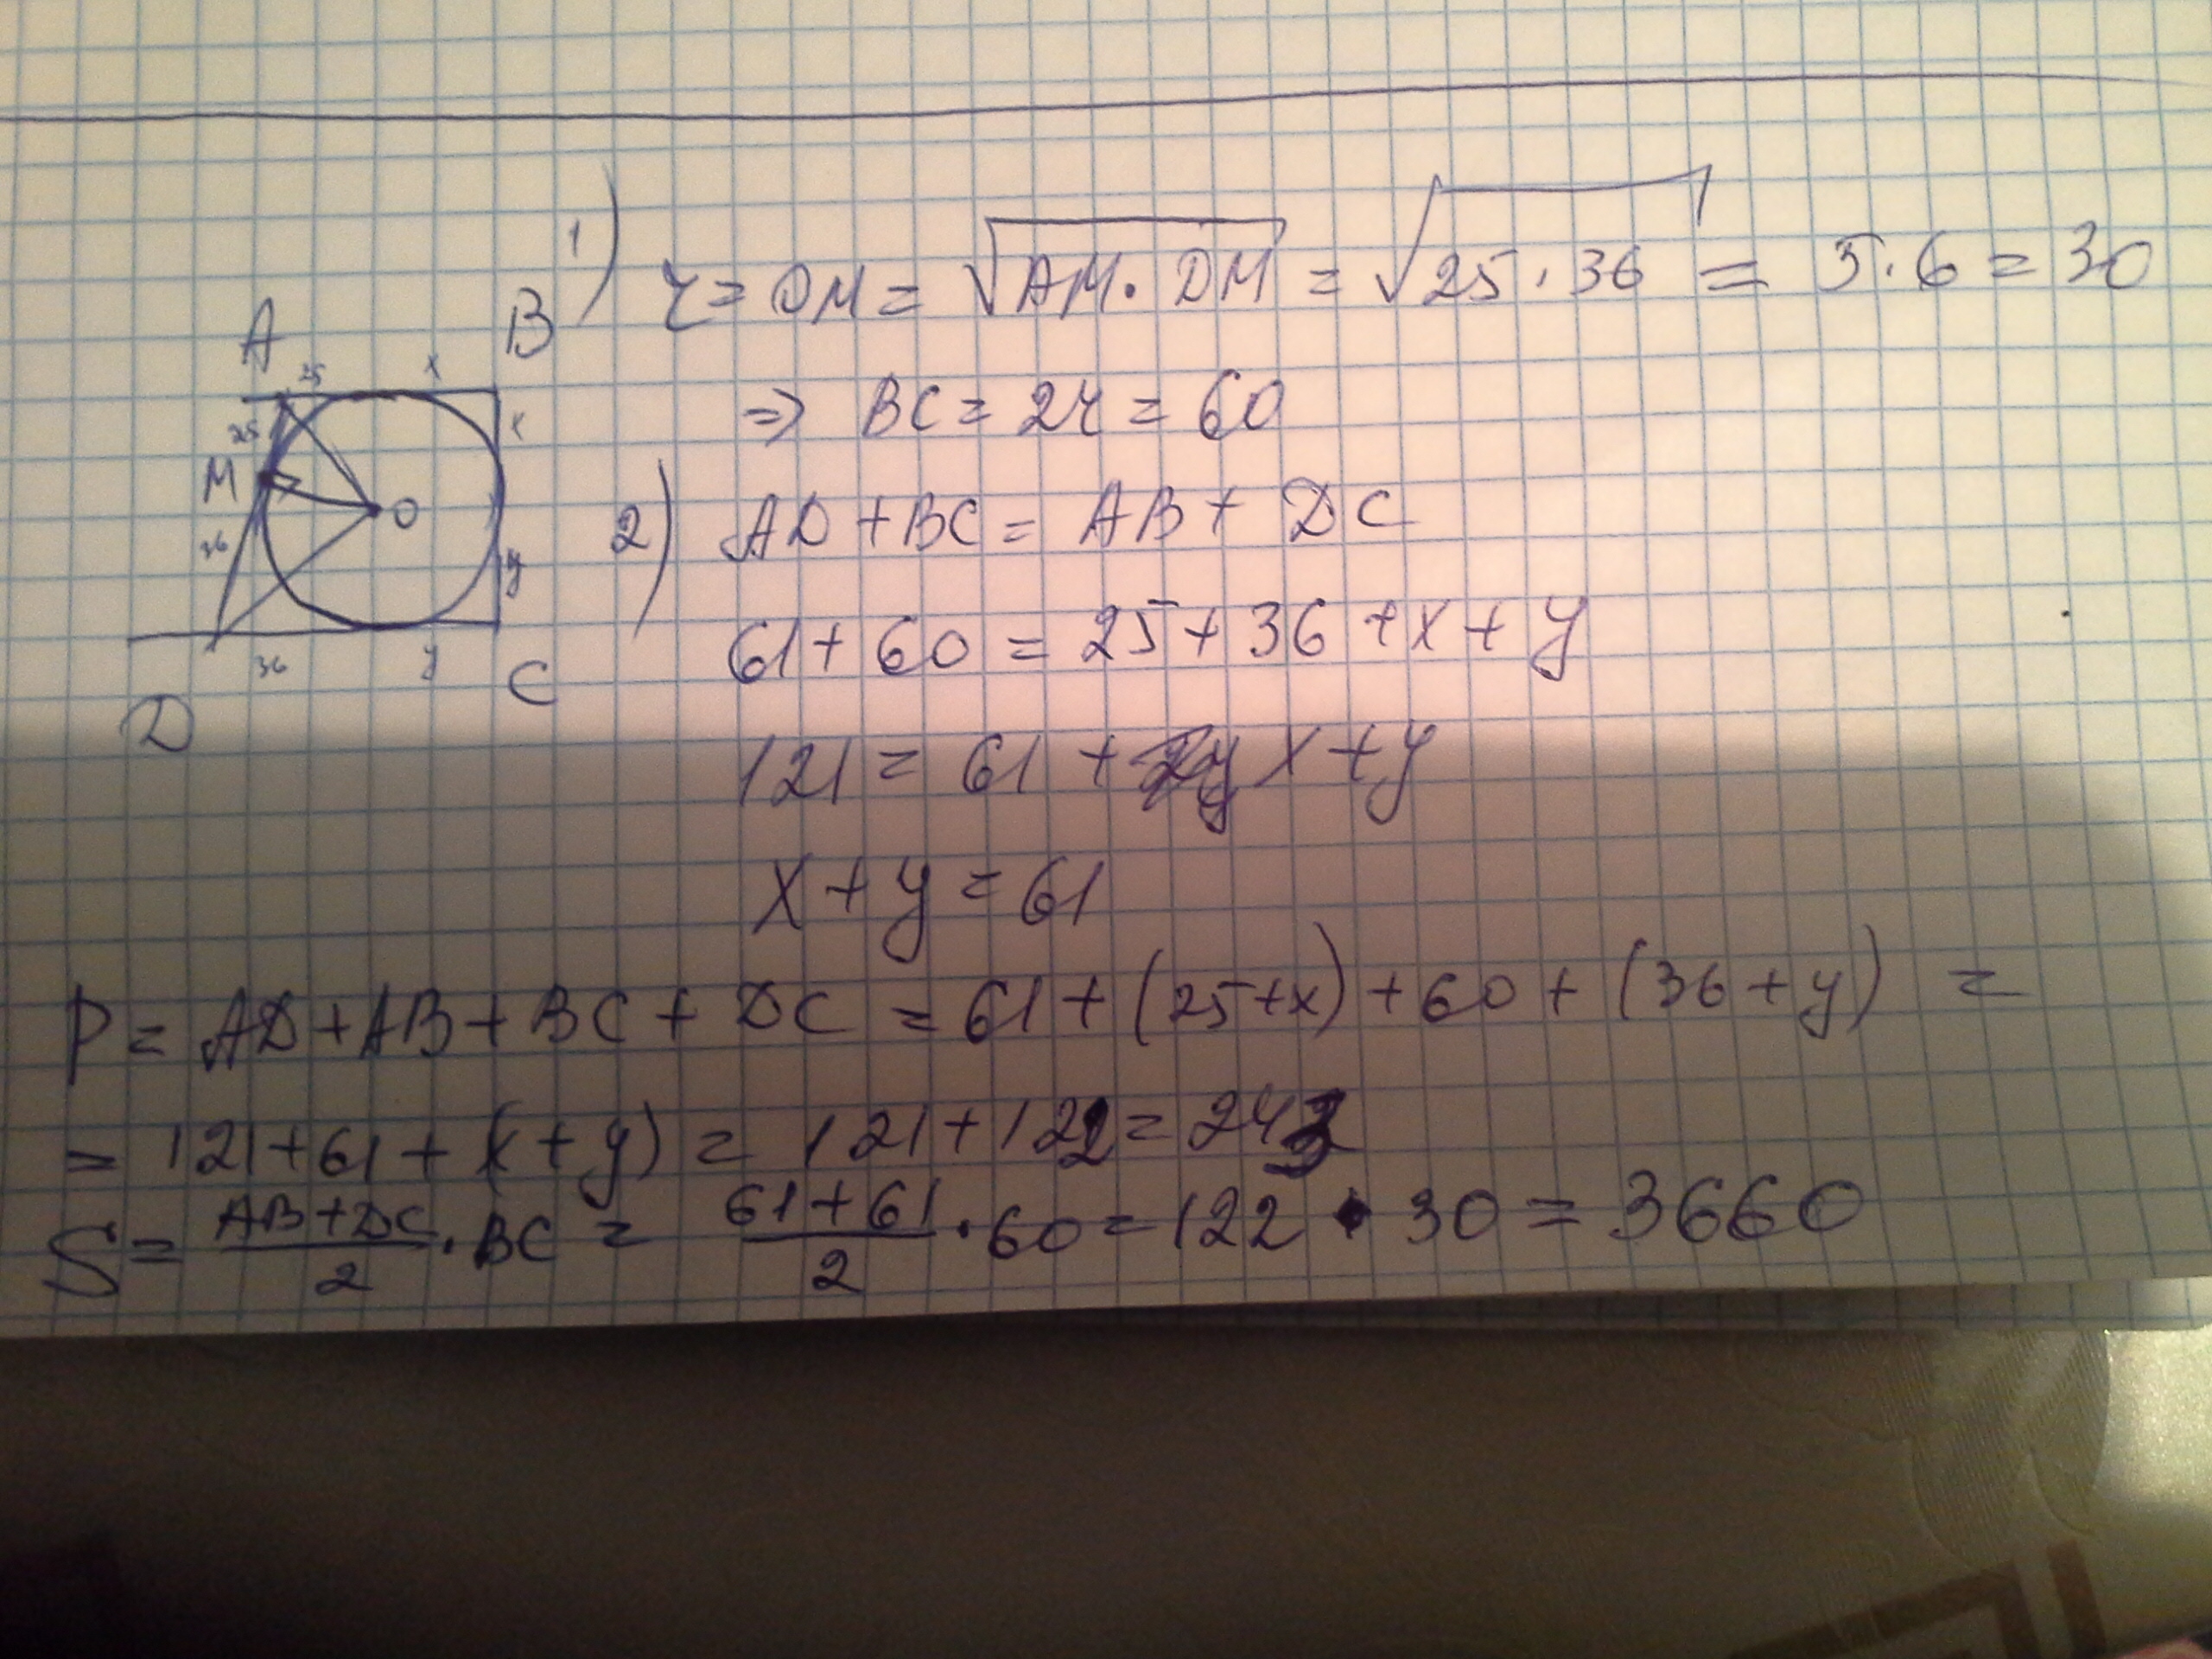 1) r = OM = √(AM · DM) = √(25 · 36) = 5 · 6 = 30
⇒ BC = 2r = 60
A 25 x B
25 x
M O
36 y
36 y C
D
2) AD + BC = AB + DC
61 + 60 = 25 + 36 + x + y
121 = 61 + x + y
x + y = 61
P = AD + AB + BC + DC = 61 + (25 + x) + 60 + (36 + y) =
= 121 + 61 + (x + y) = 121 + 122 = 243
S = (AB + DC)/2 · BC = (61 + 61)/2 · 60 = 122 · 30 = 3660